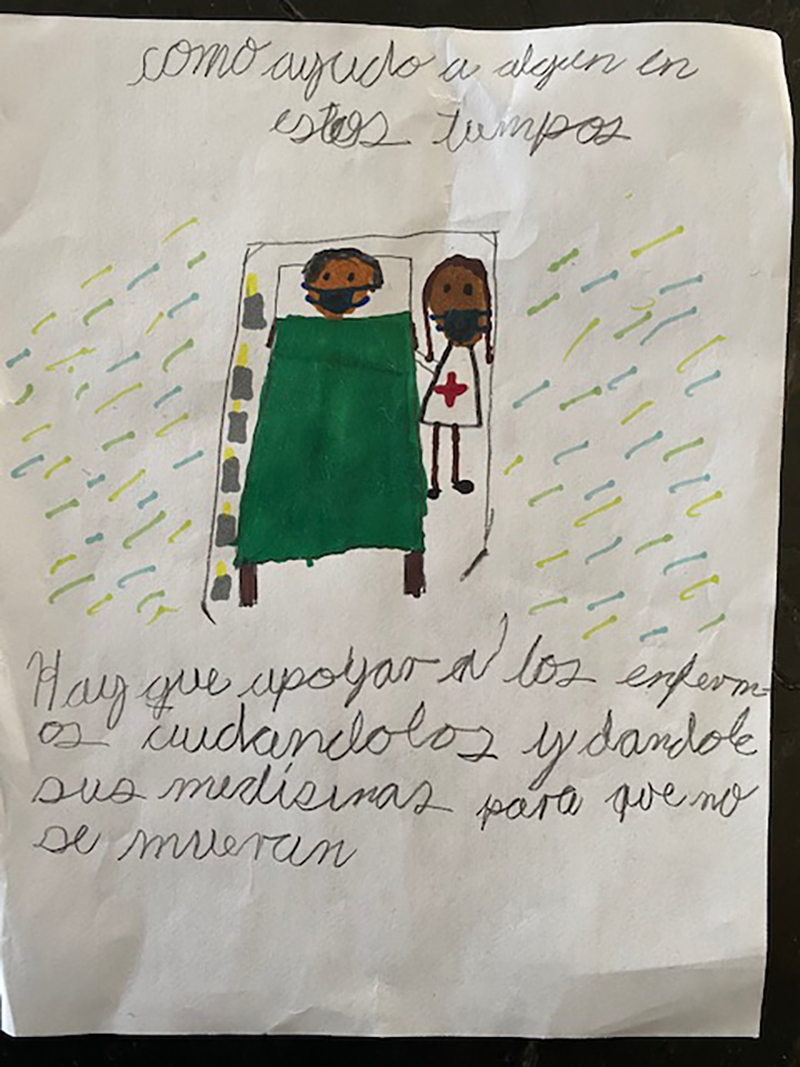 como ayudo a algun en
estos tiempos
Hay que apoyar a los enferm-
os cuidandolos y dandole
sus medísinas para que no
se mueran